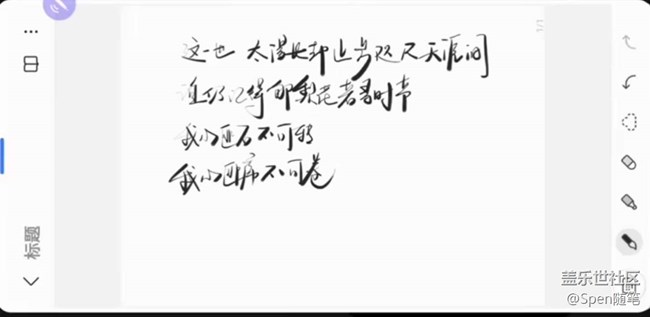 这一世 太漫长却止步咫尺天涯间
谁仍记得那梨花若雪时节
我心匪石不可转
我心匪席不可卷
标题
盖乐世社区
@Spen随笔